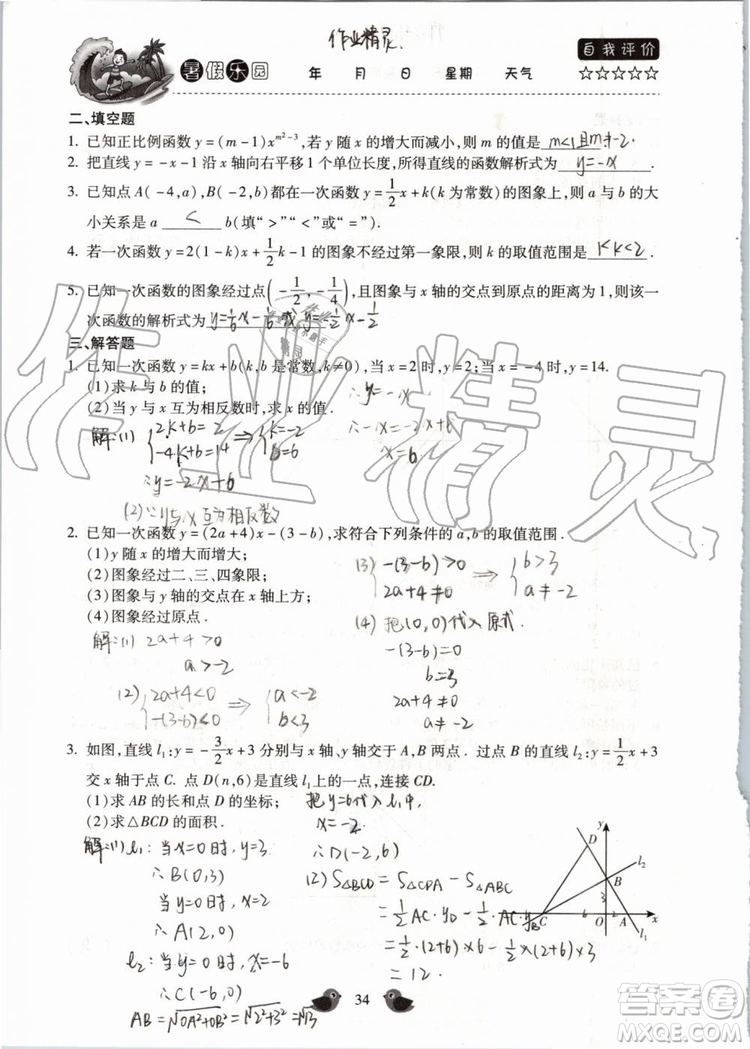 作业精灵.
暑假乐园 年 月 日 星期 天气
自我评价
☆☆☆☆☆
二、填空题
1. 已知正比例函数 y=(m-1)x^{m²-3},若 y 随 x 的增大而减小,则 m 的值是 m<1且m≠-2.
2. 把直线 y=-x-1 沿 x 轴向右平移 1 个单位长度,所得直线的函数解析式为 y=-x.
3. 已知点 A(-4,a),B(-2,b)都在一次函数 y=1/2x+k(k 为常数)的图象上,则 a 与 b 的大
小关系是 a < b(填“>”“<”或“=”).
4. 若一次函数 y=2(1-k)x+1/2k-1 的图象不经过第一象限,则 k 的取值范围是 k<2.
5. 已知一次函数的图象经过点(-1/2,-1/4),且图象与 x 轴的交点到原点的距离为 1,则该一
次函数的解析式为 y=1/6x-1/6或 y=-1/2x-1/2
三、解答题
1. 已知一次函数 y=kx+b(k,b 是常数,k≠0),当 x=2 时,y=2;当 x=-4 时,y=14.
(1)求 k 与 b 的值;
(2)当 y 与 x 互为相反数时,求 x 的值.
解:(1) {2k+b=2 -4k+b=14 ⇒ {k=-2 b=6
∴y=-2x+6
(2)∵y与x互为相反数
y=-x
∴-x=-2x+6
x=6
2. 已知一次函数 y=(2a+4)x-(3-b),求符合下列条件的 a,b 的取值范围.
(1)y 随 x 的增大而增大;
(2)图象经过二、三、四象限;
(3)图象与 y 轴的交点在 x 轴上方;
(4)图象经过原点.
解:(1) 2a+4>0
a>-2
(2) {2a+4<0 -(3-b)<0 ⇒ {a<-2 b<3
(3) {-(3-b)>0 2a+4≠0 ⇒ {b>3 a≠-2
(4) 把(0,0)代入原式.
-(3-b)=0
b=3
2a+4≠0
a≠-2
3. 如图,直线 l₁:y=-3/2x+3 分别与 x 轴、y 轴交于 A,B 两点. 过点 B 的直线 l₂:y=1/2x+3
交 x 轴于点 C. 点 D(n,6)是直线 l₁ 上的一点,连接 CD.
(1)求 AB 的长和点 D 的坐标;
(2)求△BCD 的面积.
解:(1) l₁: 当x=0时,y=3
∴B(0,3)
当y=0时,x=2
∴A(2,0)
l₂: 当y=0时,x=-6
∴C(-6,0)
AB=√OA²+OB²=√2²+3²=√13
把y=6代入l₁中,
x=-2
∴D(-2,6)
(2) S△BCD=S△CDA-S△ABC
=1/2AC·yD-1/2AC·yB
=1/2·(2+6)×6-1/2×(2+6)×3
=12.
y D l₂ B 3 C 6 O 2 A x l₁
34
作业精灵
答案圈
MXQE.COM